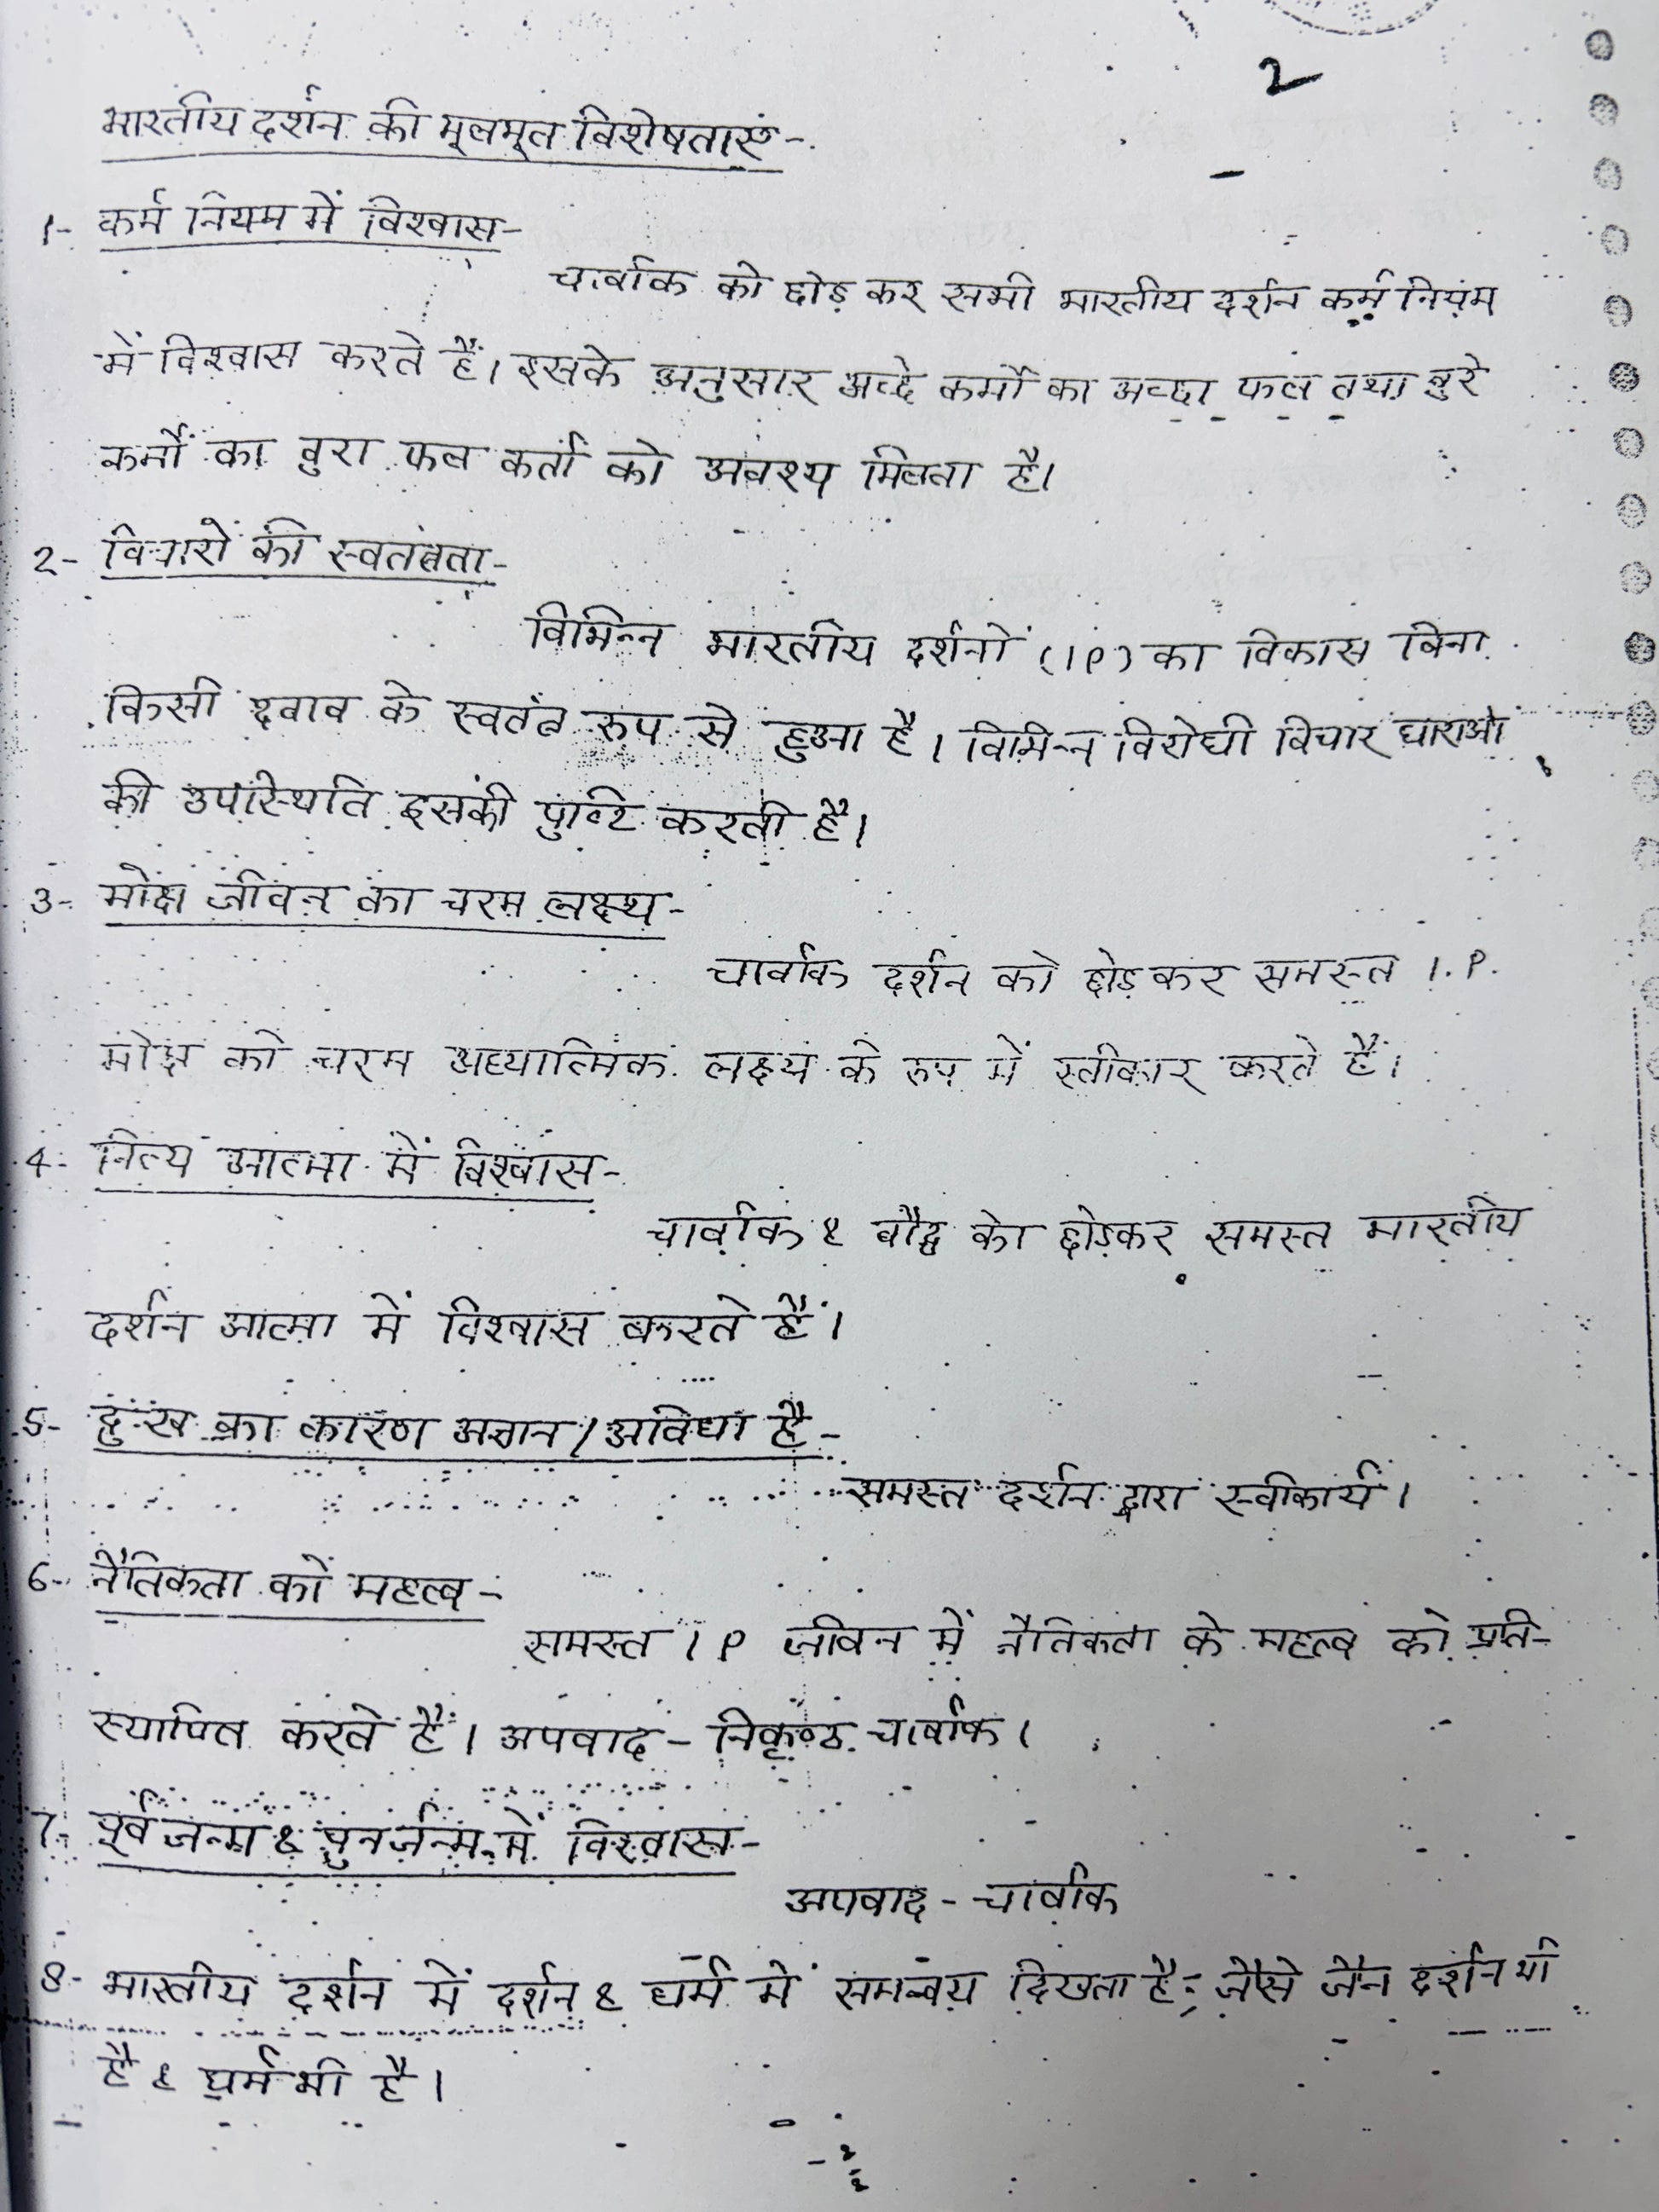 2
भारतीय दर्शन की मूलभूत विशेषताएं -
1- कर्म नियम में विश्वास -
चार्वाक को छोड़ कर सभी भारतीय दर्शन कर्म नियम
में विश्वास करते हैं। इसके अनुसार अच्छे कर्मों का अच्छा फल तथा बुरे
कर्मों का बुरा फल कर्ता को अवश्य मिलता है।
2- विचारों की स्वतंत्रता -
विभिन्न भारतीय दर्शनों (IP) का विकास बिना
किसी दबाव के स्वतंत्र रुप से हुआ है। विभिन्न विरोधी विचार धाराओं
की उपस्थिति इसकी पुष्टि करती है।
3- मोक्ष जीवन का चरम लक्ष्य -
चार्वाक दर्शन को छोड़ कर समस्त I.P.
मोक्ष को चरम अध्यात्मिक लक्ष्य के रुप में स्वीकार करते हैं।
4- नित्य आत्मा में विश्वास -
चार्वाक & बौद्ध को छोड़कर समस्त भारतीय
दर्शन आत्मा में विश्वास करते हैं।
5- दुःख का कारण अज्ञान / अविद्या है -
समस्त दर्शन द्वारा स्वीकार्य।
6- नैतिकता को महत्व -
समस्त IP जीवन में नैतिकता के महत्व को प्रति-
स्थापित करते हैं। अपवाद - निकृष्ठ चार्वाक।
7- पूर्वजन्म & पुनर्जन्म में विश्वास -
अपवाद - चार्वाक
8- भारतीय दर्शन में दर्शन & धर्म में समन्वय दिखता है; जैसे जैन दर्शन भी
है & धर्म भी है।